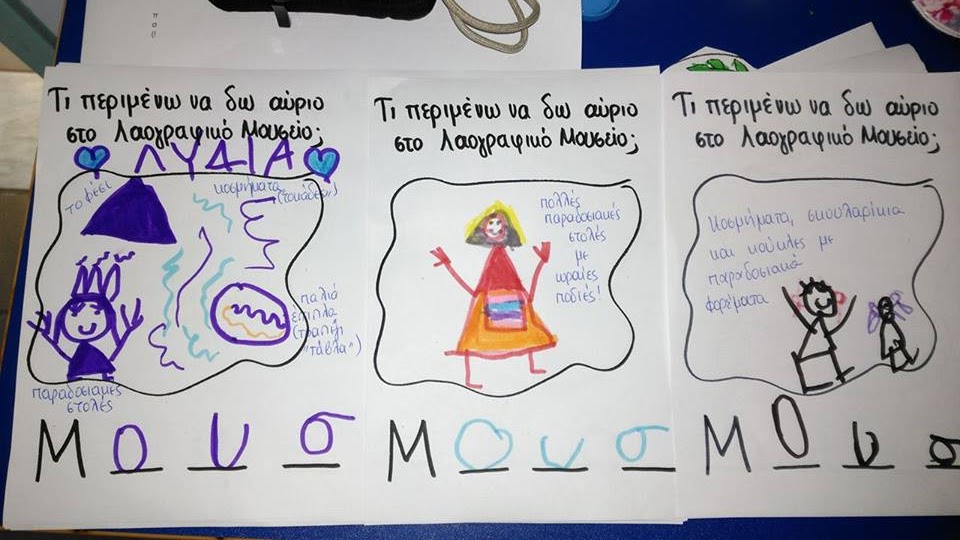 π
α
θ
Τι περιμένω να δω αύριο
στο Λαογραφικό Μουσείο;
ΛΥΔΙΑ
το φέσι
κοσμήματα
(τσκάδερ)
παλιά
έπιπλα
(τραπέζι
"τάβλα")
παραδοσιαμες
στολές
Μουσ
Τι περιμένω να δω αύριο
στο Λαογραφικό Μουσείο;
πολλές
παραδοσιακές
στολές
με
ωραίες
ποδιές!
Μουσ
Τι περιμένω να δω αύριο
στο Λαογραφικό Μουσείο;
Κοσμήματα, σκουλαρίκια
και κούκλες με
παραδοσιακά
φορέματα
Μουσ